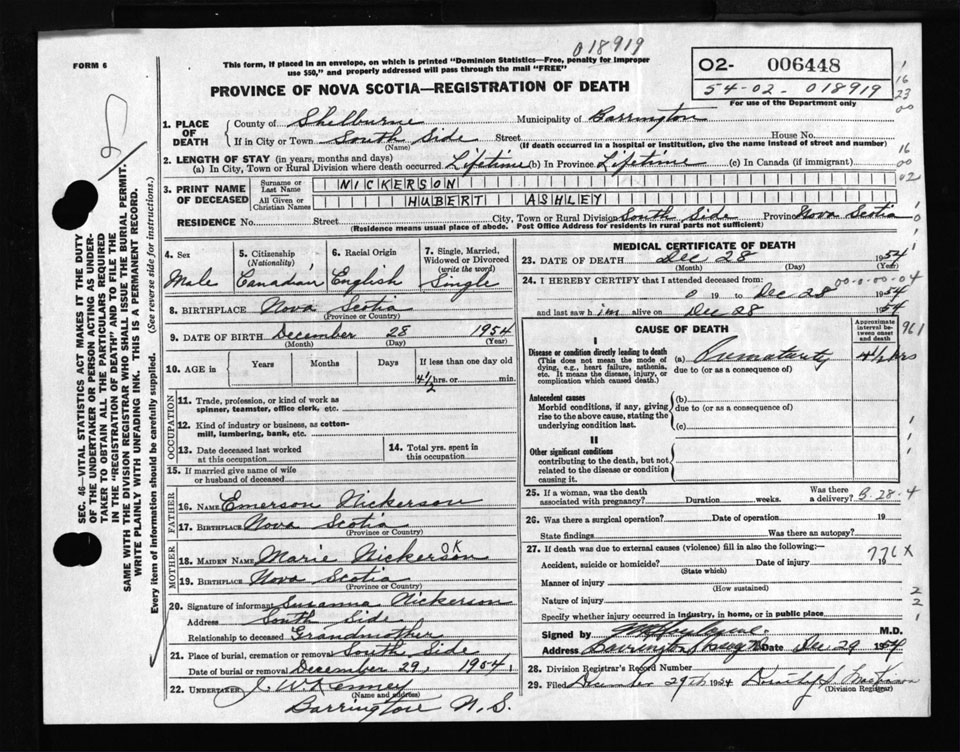 018919
FORM 6
This form, if placed in an envelope, on which is printed "Dominion Statistics—Free, penalty for improper
use $50," and properly addressed will pass through the mail "FREE"
02- 006448
54-02-018919
For use of the Department only
PROVINCE OF NOVA SCOTIA—REGISTRATION OF DEATH
1. PLACE OF DEATH
County of Shelburne Municipality of Barrington
If in City or Town South Side Street House No.
(Name) (If death occurred in a hospital or institution, give the name instead of street and number)
2. LENGTH OF STAY (in years, months and days)
(a) In City, Town or Rural Division where death occurred Lifetime (b) In Province Lifetime (c) In Canada (if immigrant)
3. PRINT NAME OF DECEASED
Surname or Last Name NICKERSON
All Given or Christian Names HUBERT ASHLEY
RESIDENCE No. Street City, Town or Rural Division South Side Province Nova Scotia
(Residence means usual place of abode. Post Office Address for residents in rural parts not sufficient)
4. Sex Male
5. Citizenship (Nationality) Canadian
6. Racial Origin English
7. Single, Married, Widowed or Divorced (write the word) Single
8. BIRTHPLACE Nova Scotia
(Province or Country)
9. DATE OF BIRTH December 28 1954
(Month) (Day) (Year)
10. AGE in Years Months Days If less than one day old
4½ hrs. or min.
OCCUPATION
11. Trade, profession, or kind of work as
spinner, teamster, office clerk, etc.
12. Kind of industry or business, as cotton-
mill, lumbering, bank, etc.
13. Date deceased last worked
at this occupation
14. Total yrs. spent in
this occupation
15. If married give name of wife
or husband of deceased
FATHER
16. NAME Emerson Nickerson
17. BIRTHPLACE Nova Scotia
(Province or Country)
MOTHER
18. MAIDEN NAME Marie Nickerson OK
19. BIRTHPLACE Nova Scotia
(Province or Country)
20. Signature of informant Susanna Nickerson
Address South Side
Relationship to deceased Grandmother
21. Place of burial, cremation or removal South Side
Date of burial or removal December 29, 1954
22. UNDERTAKER J. W. Kenney
(Name and address)
Barrington N.S.
MEDICAL CERTIFICATE OF DEATH
23. DATE OF DEATH Dec 28 1954
(Month) (Day) (Year)
24. I HEREBY CERTIFY that I attended deceased from:
00-0-00-04
0 19 to Dec 28 1954
and last saw him alive on Dec 28 1954
CAUSE OF DEATH
Approximate interval between onset and death
961
I
Disease or condition directly leading to death (a) Prematurity 4½ hrs
(This does not mean the mode of
dying, e.g., heart failure, asthenia,
etc. It means the disease, injury, or
complication which caused death.)
due to (or as a consequence of)
Antecedent causes
Morbid conditions, if any, giving
rise to the above cause, stating the
underlying condition last.
(b)
due to (or as a consequence of)
(c)
II
Other significant conditions
contributing to the death, but not
related to the disease or condition
causing it.
25. If a woman, was the death
associated with pregnancy? Duration weeks. Was there a delivery? B-28-4
26. Was there a surgical operation? Date of operation 19
State findings Was there an autopsy?
27. If death was due to external causes (violence) fill in also the following:—
776X
Accident, suicide or homicide? Date of injury 19
(State which)
Manner of injury
(How sustained)
Nature of injury
Specify whether injury occurred in industry, in home, or in public place
Signed by M.D.
Address Barrington Date Dec 29 1954
28. Division Registrar's Record Number
29. Filed December 29th 1954
(Division Registrar)
SEC. 46—VITAL STATISTICS ACT MAKES IT THE DUTY
OF THE UNDERTAKER OR PERSON ACTING AS UNDER-
TAKER TO OBTAIN ALL THE PARTICULARS REQUIRED
IN THE "REGISTRATION OF DEATH" AND TO FILE THE
SAME WITH THE DIVISION REGISTRAR WHO SHALL ISSUE THE BURIAL PERMIT.
WRITE PLAINLY WITH UNFADING INK. THIS IS A PERMANENT RECORD.
Every item of information should be carefully supplied. (See reverse side for instructions.)
16
23
00
16
00
02